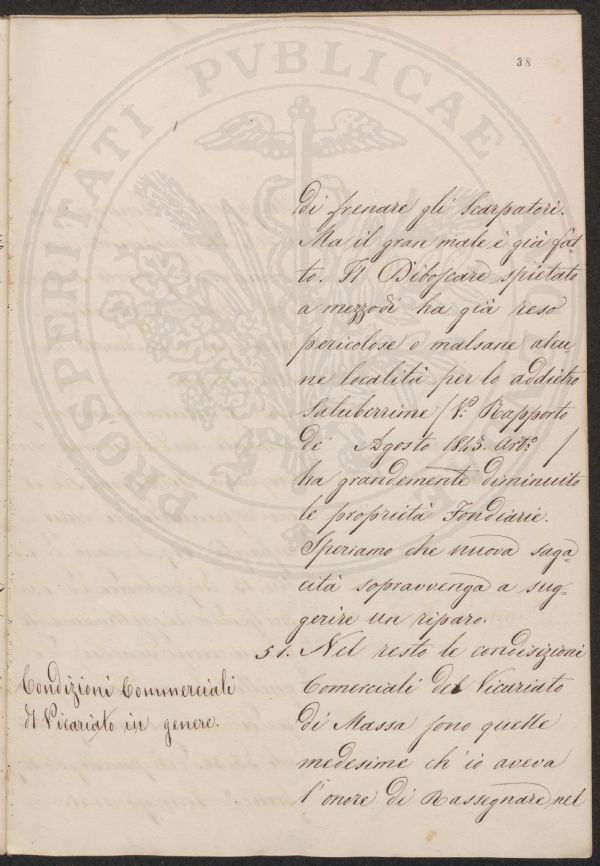 38
di frenare gli Scarpatori.
Ma il gran male è già fat
to. Il Diboscare spietato
a mezzodì ha già reso
pericolose o malsane alcu
ne località per lo addietro
Saluberrime / V: Rapporto
de' Agosto 1843. Art: /
ha grandemente diminuito
le proprietà Fondiarie.
Speriamo che nuova saga=
cità sopravvenga a sug=
gerire un riparo.
51. Nel resto le condizizioni
Comerciali del Vicariato
di Massa sono quelle
medesime ch'io aveva
l'onore di Rassegnare, nel
Condizioni Commerciali
Vicariato in genere.
PROSPERITATI PVBLICAE